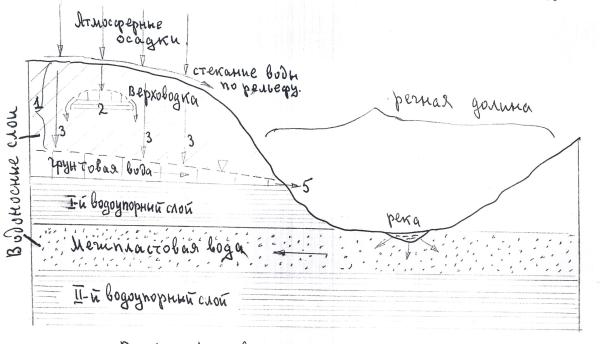 Атмосферные
осадки
стекание воды
по рельефу.
Верховодка
речная долина
Водоносные слои
1
2
3
3
3
грунтовая вода
5
I-й водоупорный слой
река
Межпластовая вода
II-й водоупорный слой